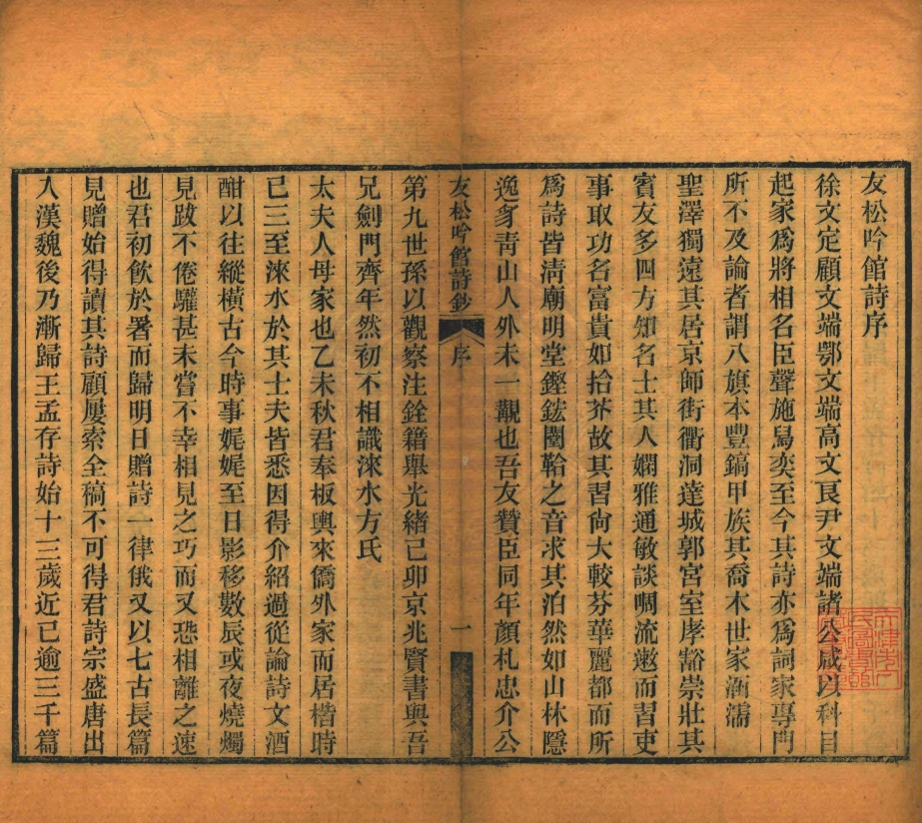 友松吟館詩序
徐文定顧文端鄂文端高文良尹文端諸公咸以科目
起家爲將相名臣聲施舄奕至今其詩亦爲詞家專門
所不及論者謂八旗本豐鎬甲族其喬木世家涵濡
聖澤獨遠其居京師街衢洞達城郭宮室庨豁崇壯其
賓友多四方知名士其人嫻雅通敏談啁流遬而習吏
事取功名富貴如拾芥故其習尙大較芬華麗都而所
爲詩皆淸廟明堂鏗鋐闛鞈之音求其泊然如山林隱
逸身靑山人外未一觀也吾友贊臣同年顏札忠介公
友松吟館詩鈔 序 一
第九世孫以觀察注銓籍舉光緒己卯京兆賢書與吾
兄劍門齊年然初不相識淶水方氏
太夫人母家也乙未秋君奉板輿來僑外家而居楷時
已三至淶水於其士夫皆悉因得介紹過從論詩文酒
酣以往縱橫古今時事娓娓至日影移數辰或夜燒燭
見跋不倦驩甚未嘗不幸相見之巧而又恐相離之速
也君初飲於署而歸明日贈詩一律俄又以七古長篇
見贈始得讀其詩顧屢索全稿不可得君詩宗盛唐出
入漢魏後乃漸歸王孟存詩始十三歲近已逾三千篇